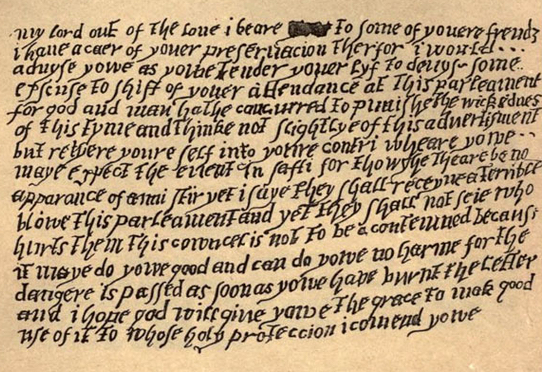 my lord out of the loue i beare to some of youere frendz
i haue a caer of youer preseruacion therfor i would
aduyse yowe as yowe tender youer lyf to deuys some
excuse to shift of youer attendance at this parleament
for god and man hathe concurred to punishe the wickednes
of this tyme and thinke not slightlye of this aduertisment
but retyere youre self into youre contri wheare yowe
maye expect the euent in safti for thowghe theare be no
apparance of anni stir yet i saye they shall receyue a terrible
blowe this parleament and yet they shall not seie who
hurts them this cowncel is not to be acontemned because
it maye do yowe good and can do yowe no harme for the
dangere is passed as soon as yowe have burnt the letter
and i hope god will giue yowe the grace to mak good
use of it to whose holy proteccion i comend yowe